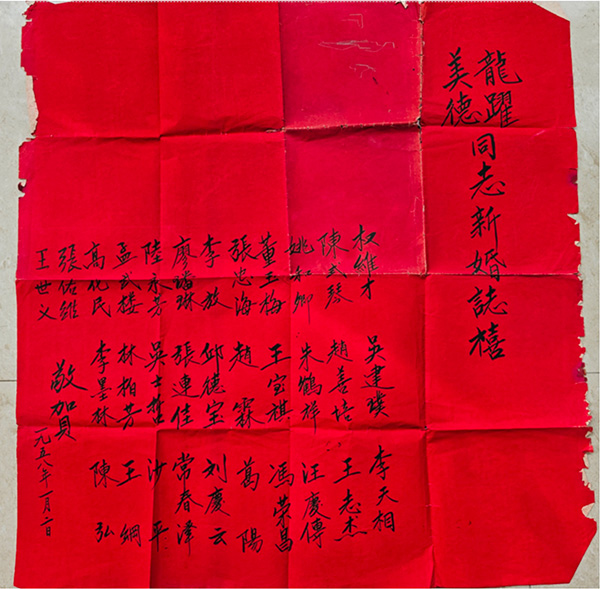 龍躍
美德
同志新婚誌禧
权維才
陳式琴
姚和卿
董玉梅
張忠海
李放
廖璿琳
陸永芳
孟武樓
高化民
張佐維
王世义
吴建璞
趙善培
朱鶴祥
王宝祺
趙霖
邱德宝
張連佳
吴士哲
林柏芳
李墨林
李天相
王志杰
汪慶傳
馮榮昌
葛陽
刘慶云
常春澤
沙平
王綱
陳弘
敬賀
一九五八年一月二日